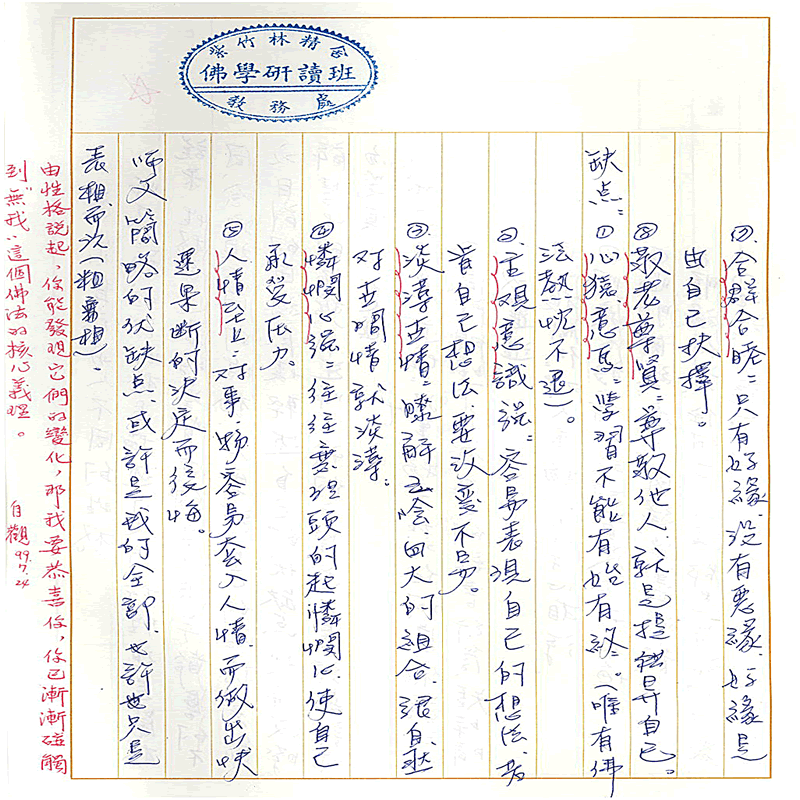 紫竹林精舍
佛學研讀班
教務處
⑦合群合眾：只有好緣、沒有惡緣、好緣是
由自己抉擇。
⑧敬老尊賢：尊敬他人、就是提昇自己。
缺点：①心猿意馬：學習不能有始有終。（唯有佛
法熱忱不退）。
②主觀意識強：容易表現自己的想法、若
肯自己想法、要改變不易。
③淡薄世情：瞭解五陰、四大的組合、很自然
对世間情就淡薄。
④憐憫心強：往往無理頭的起憐憫心、使自己
承受压力。
⑤人情至上：对事、物容易套入人情、而做出快
速果斷的決定而後悔。
師父簡略的优缺点、或許是我的全部、也許也只是
表相而次（粗重相）、
由性格說起，你能發現它們的變化，那我要恭喜你，你已漸漸碰觸
到“無我”這個佛法的核心義理。
自觀 99.7.24